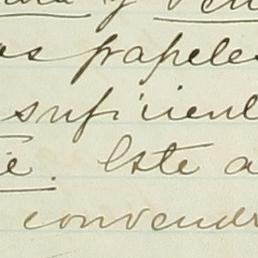 y Ven
os papeles
suficient
te. Este a
convendr